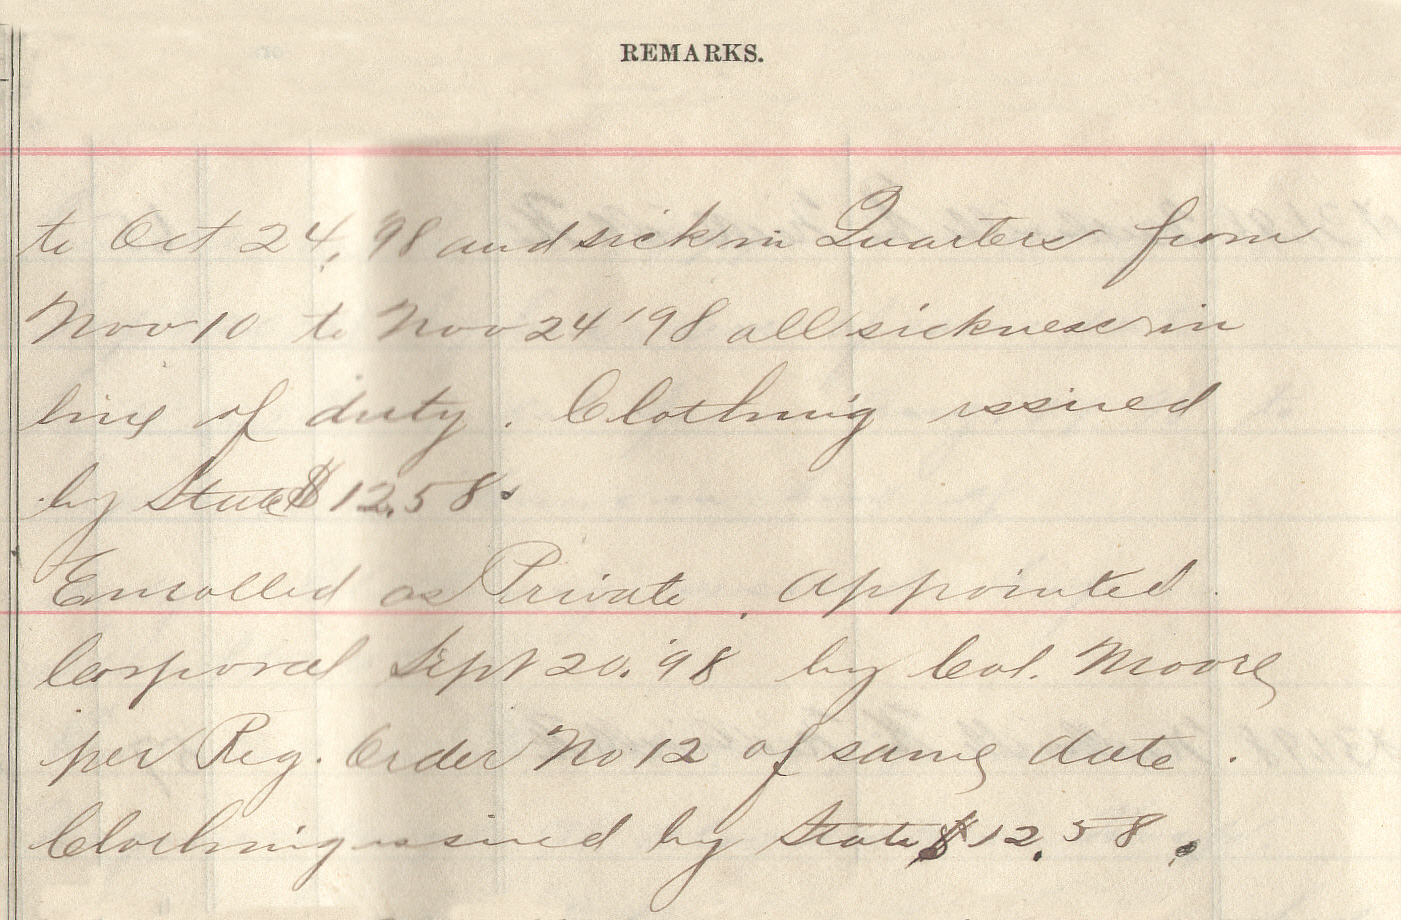 REMARKS.
to Oct 24, '98 and sick in Quarters from
Nov 10 to Nov 24 '98 all sickness in
line of duty. Clothing issued
by State $12.58.
Enrolled as Private. Appointed
Corporal Sept 20, '98 by Col. Moore
per Reg. Order No 12 of same date.
Clothing issued by State $12.58.